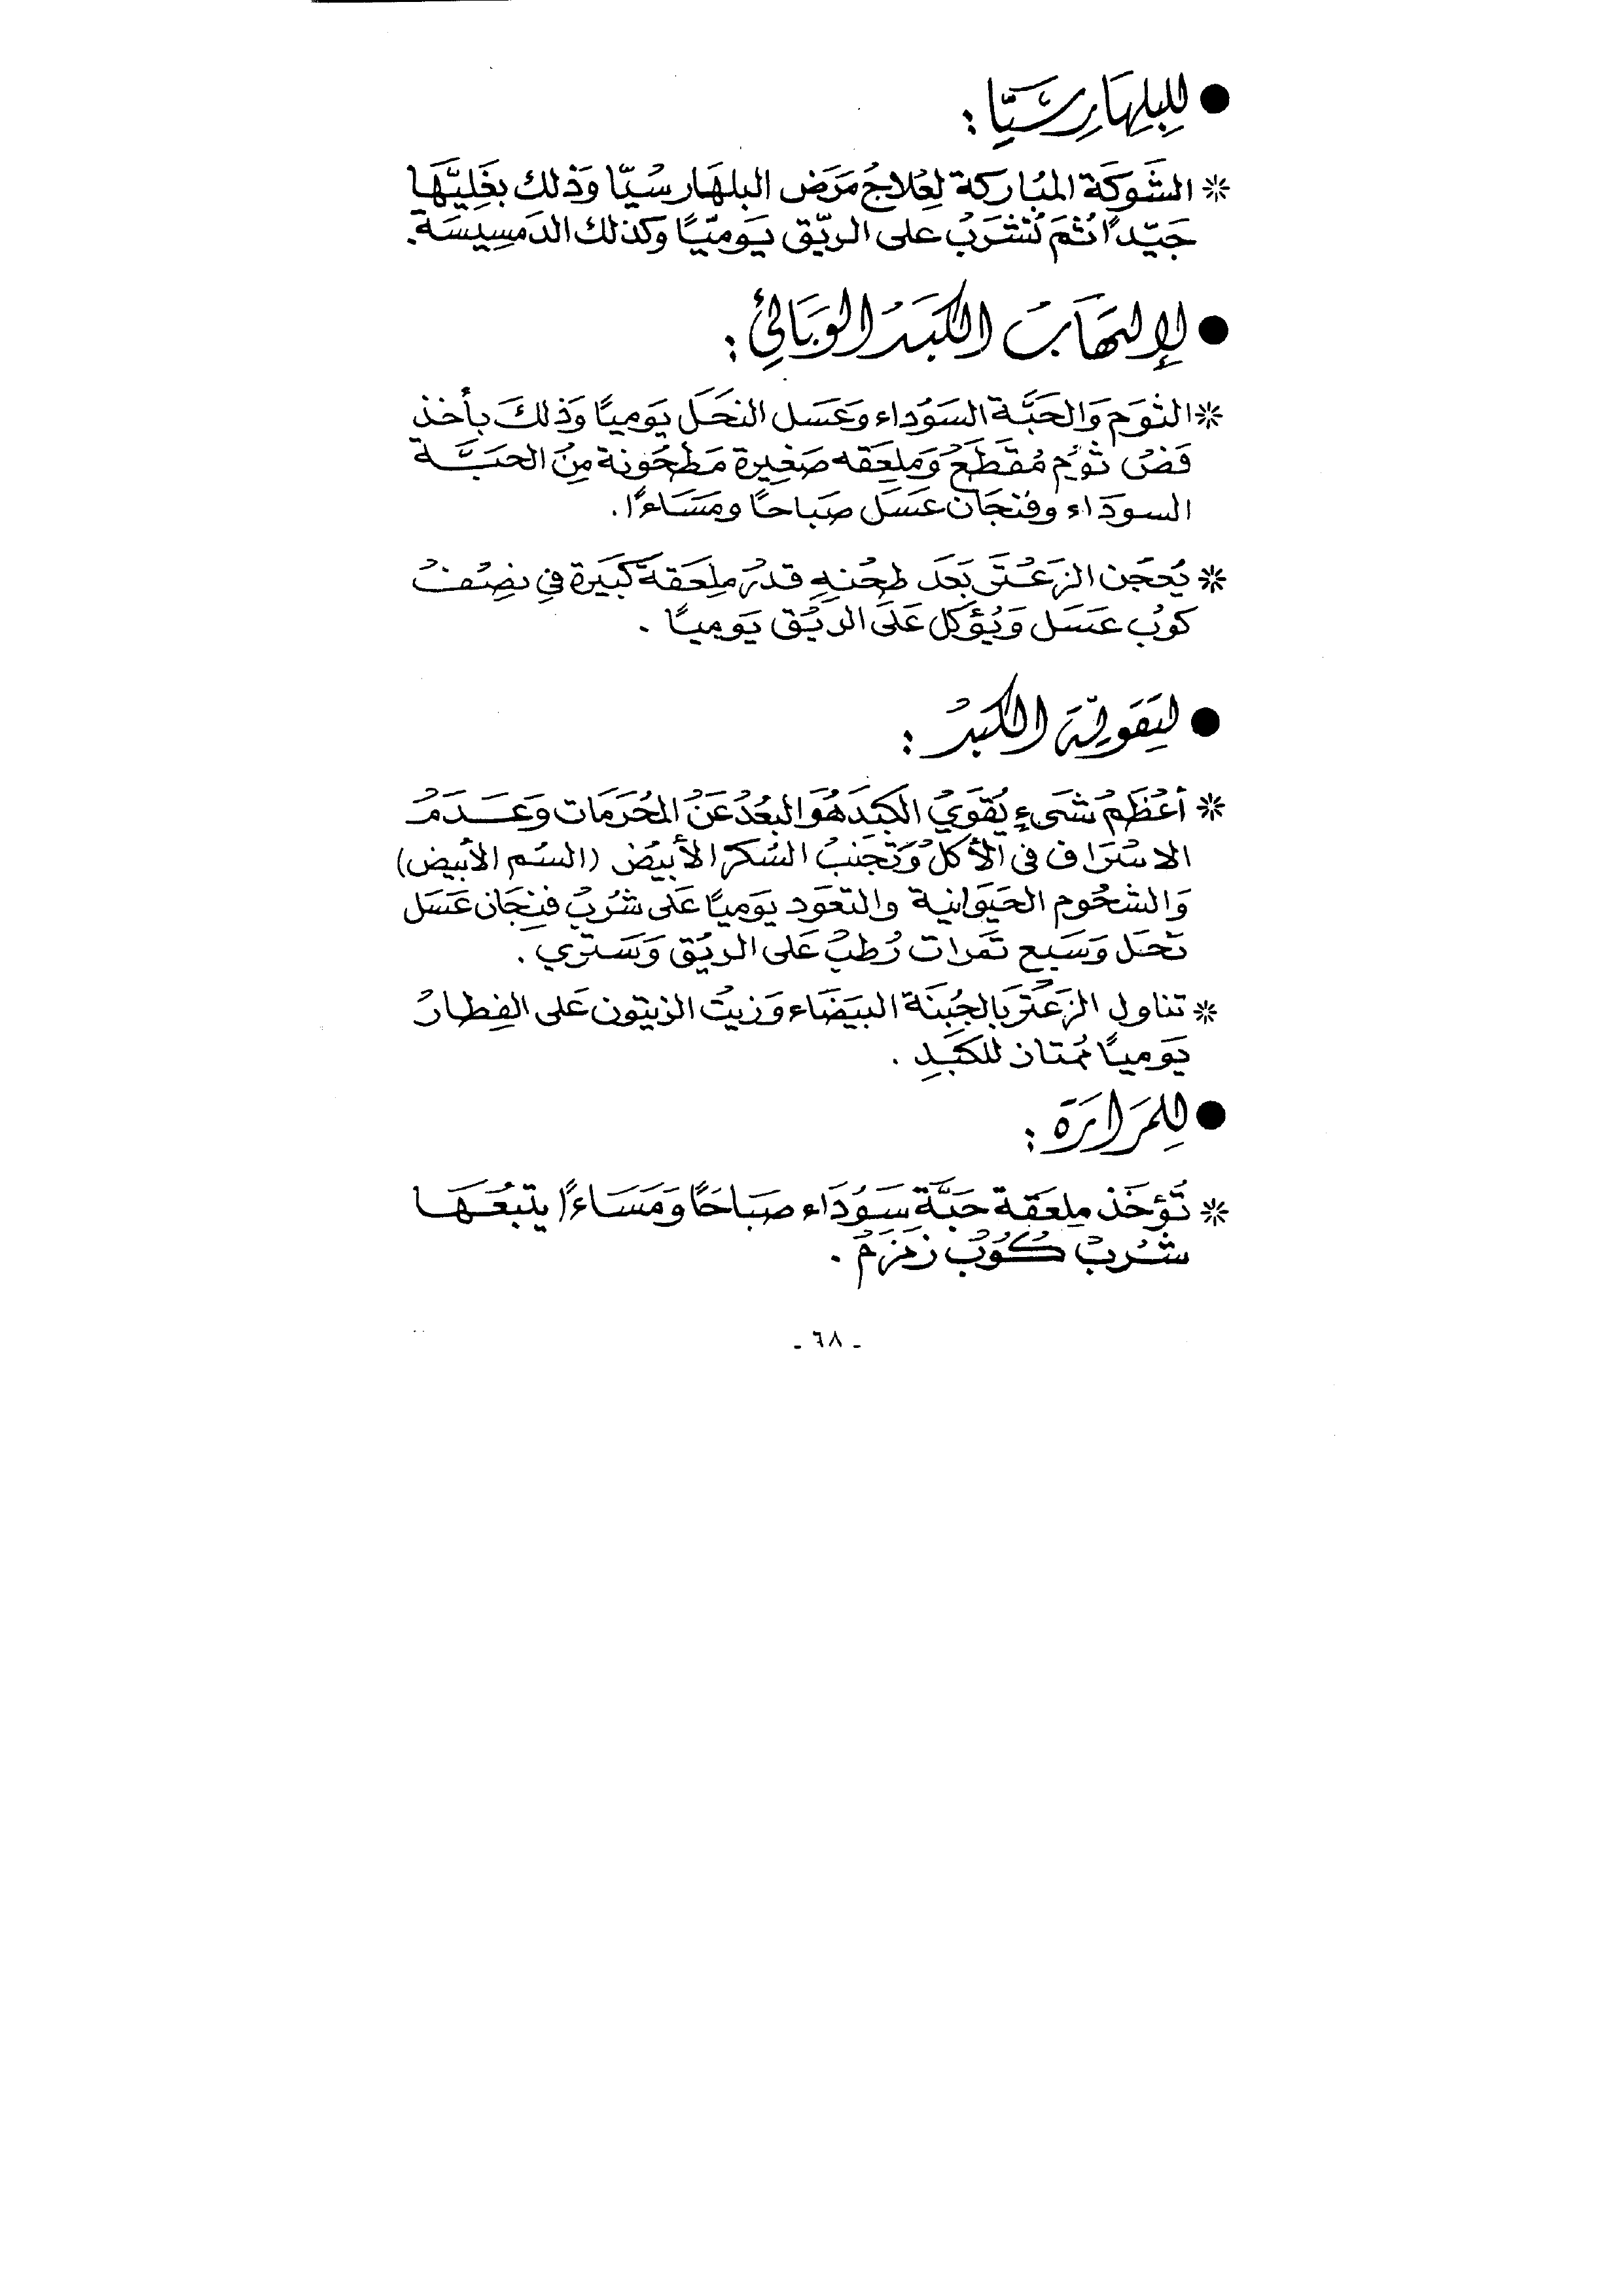 ● للبلهارسيا :
* الشوكة المباركة لعلاج مرض البلهارسيا وذلك بغليها
جيدًا ثم تشرب على الريق يوميًا وكذلك الدمسيسة.
● لإلتهاب الكبد الوبائي :
* الثوم والحبة السوداء وعسل النحل يوميًا وذلك بأخذ
فص ثوم مقطع وملعقه صغيرة مطحونة من الحبة
السوداء وفنجان عسل صباحًا ومساءًا .
* يعجن الزعتر بعد طحنه قدر ملعقة كبيرة في نصف
كوب عسل ويؤكل على الريق يوميًا .
● لتقوية الكبد :
* أعظم شيء يقوي الكبد هو البعد عن المحرمات وعدم
الاسراف في الأكل وتجنب السكر الأبيض (السم الأبيض)
والشحوم الحيوانية والتعود يوميًا على شرب فنجان عسل
نحل وسبع تمرات رطب على الريق وسترى .
* تناول الزعتر بالجبنة البيضاء وزيت الزيتون على الفطار
يوميًا ممتاز للكبد .
● للمرارة :
* تؤخذ ملعقة حبة سوداء صباحًا ومساءًا يتبعها
شرب كوب زمزم .
- ٦٨ -